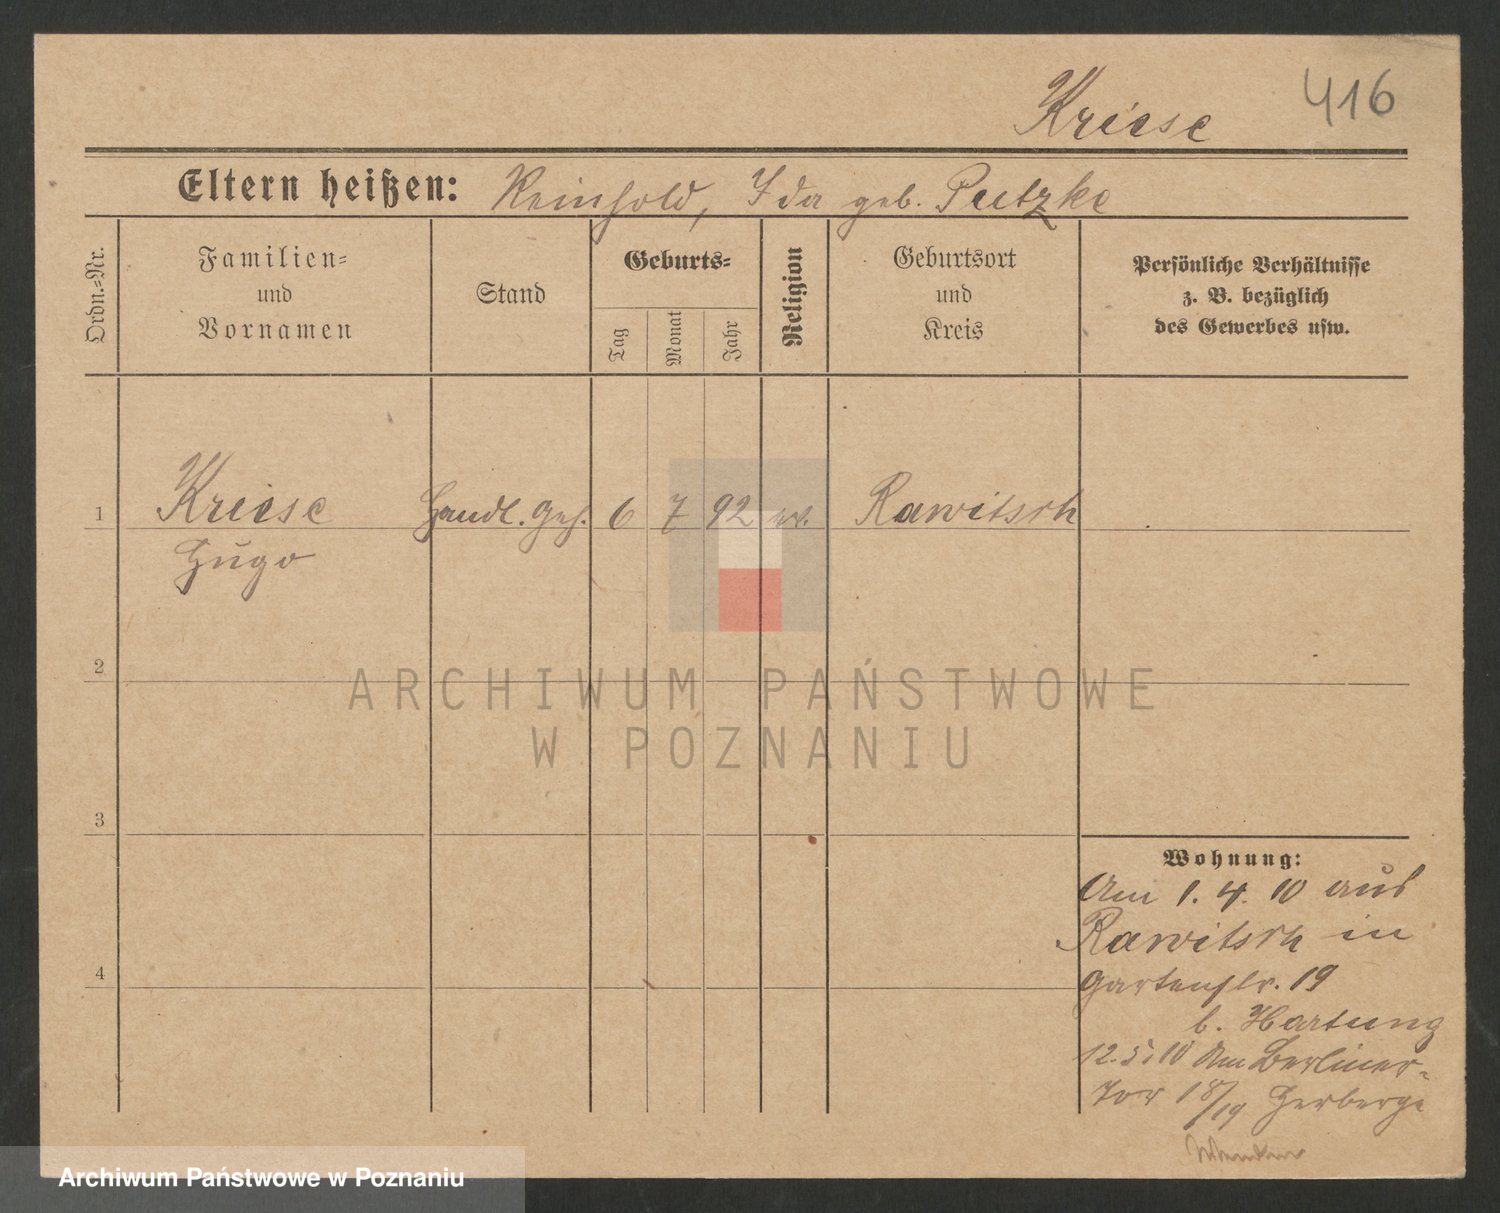 416
Kriese
Eltern heißen: Reinhold, Ida geb. Putzke
Ordn.=Nr.
Familien=
und
Vornamen
Stand
Geburts=
Tag
Monat
Jahr
Religion
Geburtsort
und
Kreis
Persönliche Verhältnisse
z. B. bezüglich
des Gewerbes usw.
1 Kriese Handl. Geh. 6 7 92 ev. Rawitsch
Hugo
2
ARCHIWUM PAŃSTWOWE
W POZNANIU
3
Wohnung:
Am 1. 4. 10 aus
Rawitsch in
4
Gartenstr. 19
b. Hartung
12.5.10 Am Berliner-
Tor 18/19 Herberge
Archiwum Państwowe w Poznaniu